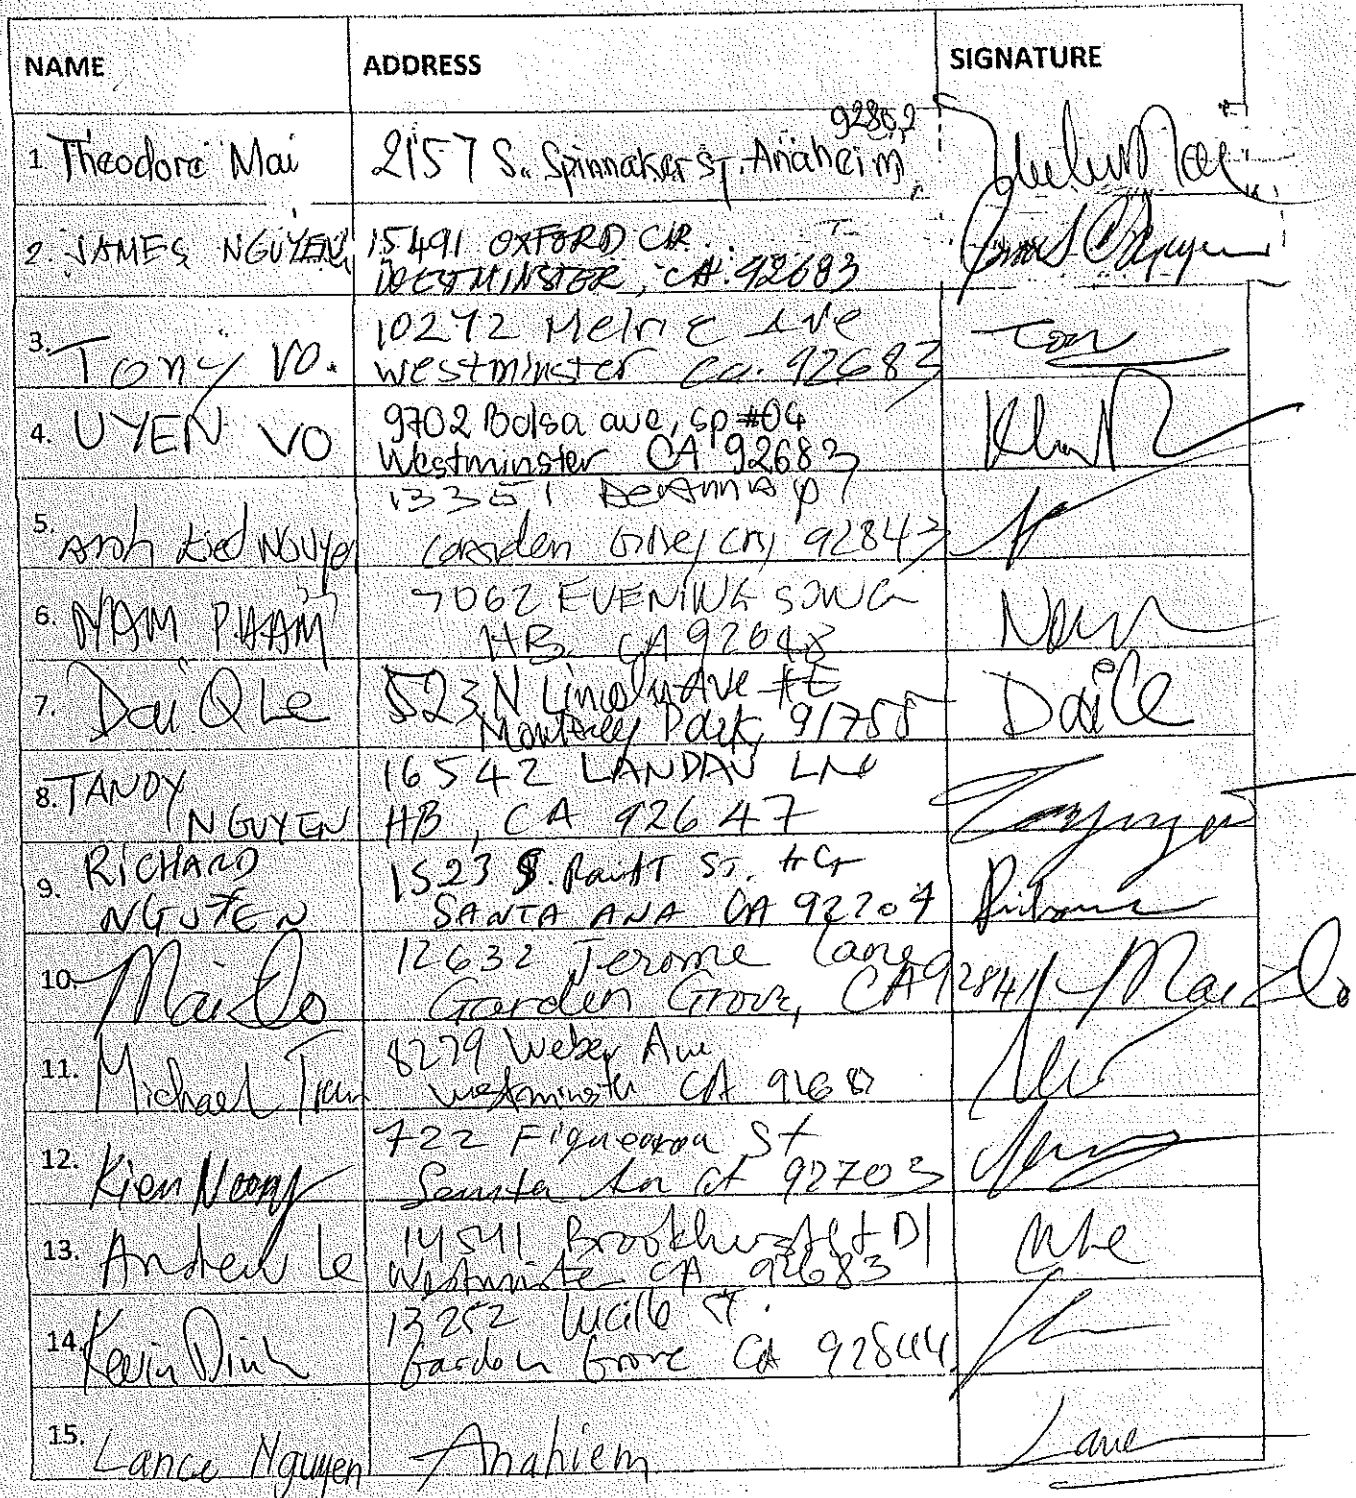 NAME ADDRESS SIGNATURE
92802
1. Theodore Mai 2157 S. Spinnaker St. Anaheim,
2. JAMES NGUYEN 15491 OXFORD CIR.
WESTMINSTER, CA. 92683
3. Tony Vo. 10272 Ave
westminster Ca. 92683
4. UYEN VO 9702 Bolsa ave, sp #04
Westminster CA 92683
13351
5. Anh Nguyen Garden 92843
6. NAM PHAM 7062 EVENING SONG
HB, CA 92648
7. Dai Q Le 523 N Lincoln Ave #E
Monterey Park, 91755
Dai Le
8. TANDY
NGUYEN
16542 LANDAU LN
HB, CA 92647
9. RICHARD
NGUYEN
1523 S. Raitt ST. #G
SANTA ANA CA 92704
10. Mai Do 12632 Jerome Lane
Garden Grove, CA 92841
Mai Do
11. Michael Tran 8279 Weber Ave
Westminster CA
12. Kien 722 Figueroa St
Santa Ana CA 92703
13. Andrew Le 14541 Brookhurst St D1
Westminster CA 92683
14. Kevin Dinh 13252 Lucille ST.
Garden Grove CA 92844
15. Lance Nguyen Anahiem